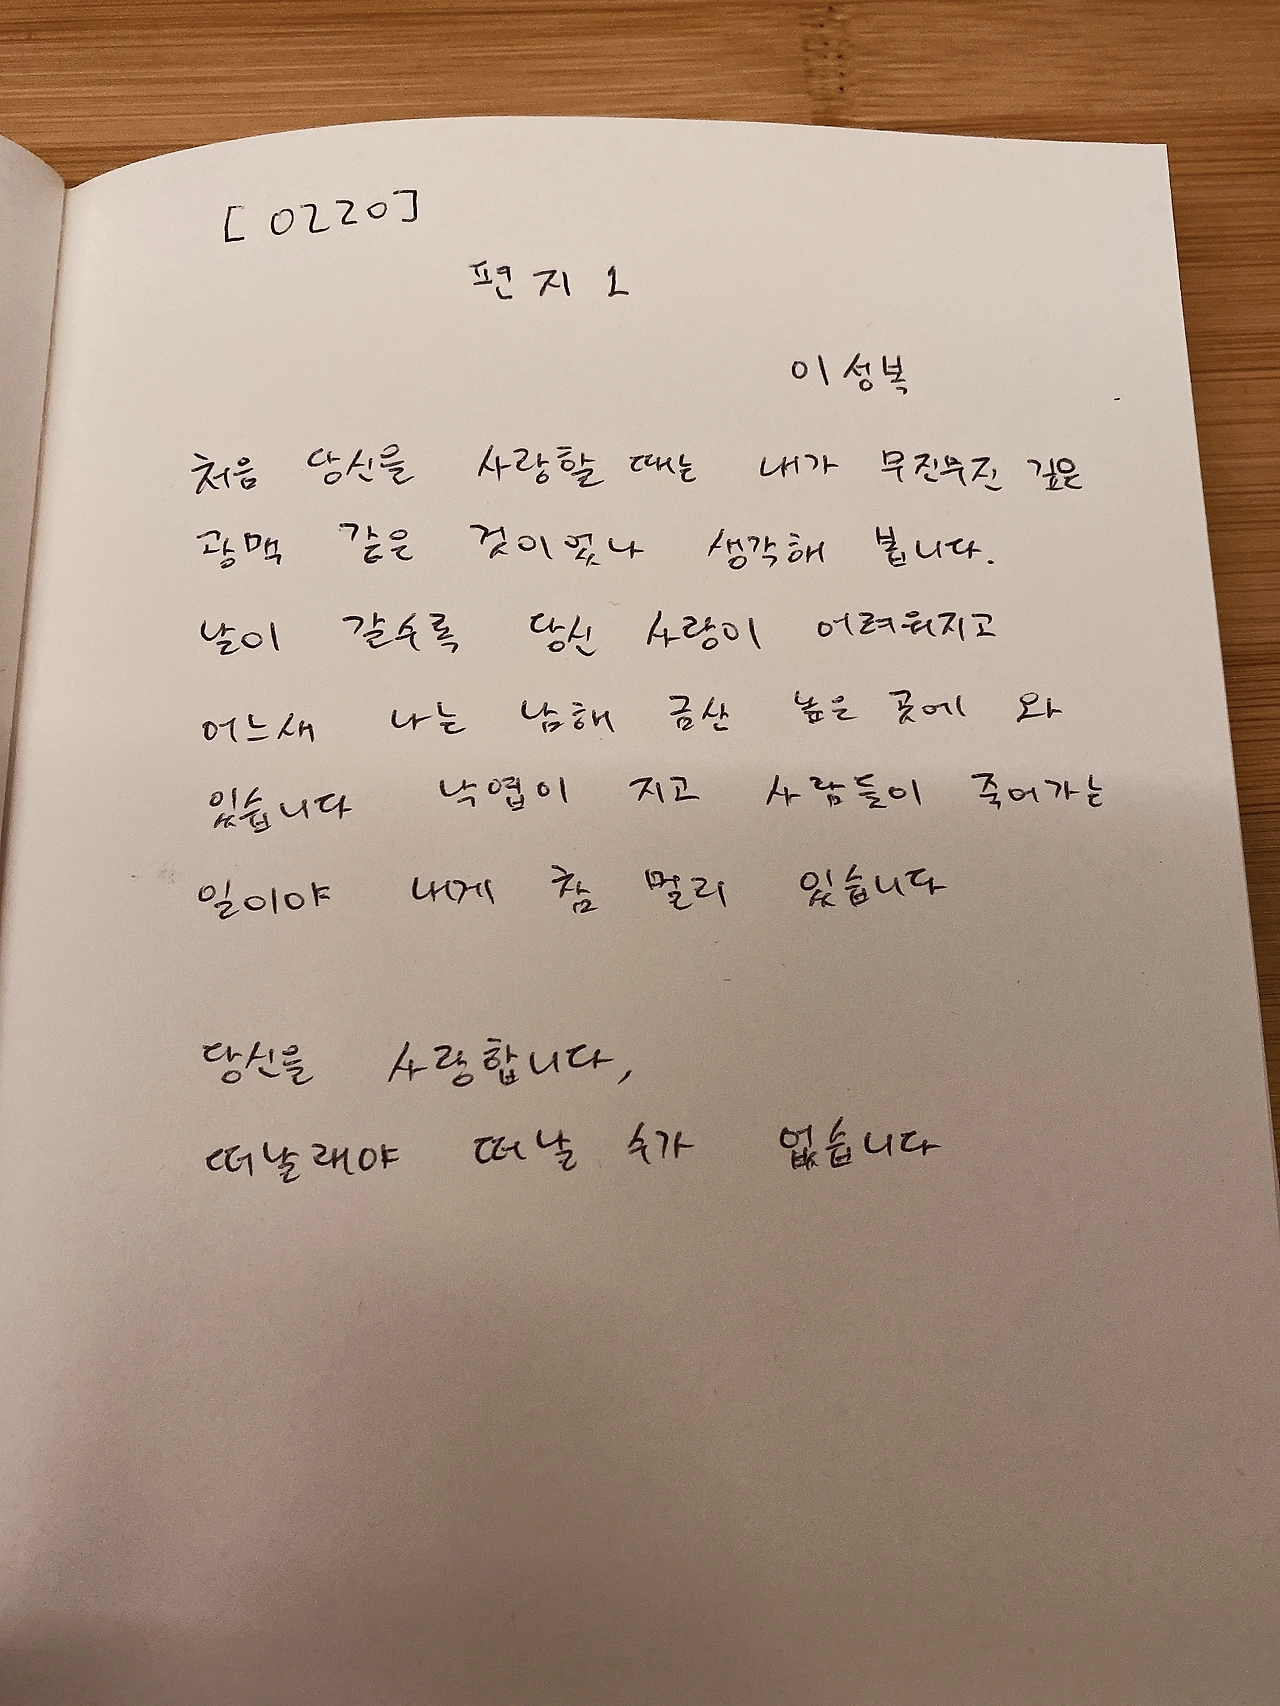 [0220]
편지 1
이성복
처음 당신을 사랑할 때는 내가 무진무진 깊은
광맥 같은 것이었나 생각해 봅니다.
날이 갈수록 당신 사랑이 어려워지고
어느새 나는 남해 금산 높은 곳에 와
있습니다 낙엽이 지고 사람들이 죽어가는
일이야 내게 참 멀리 있습니다
당신을 사랑합니다,
떠날래야 떠날 수가 없습니다